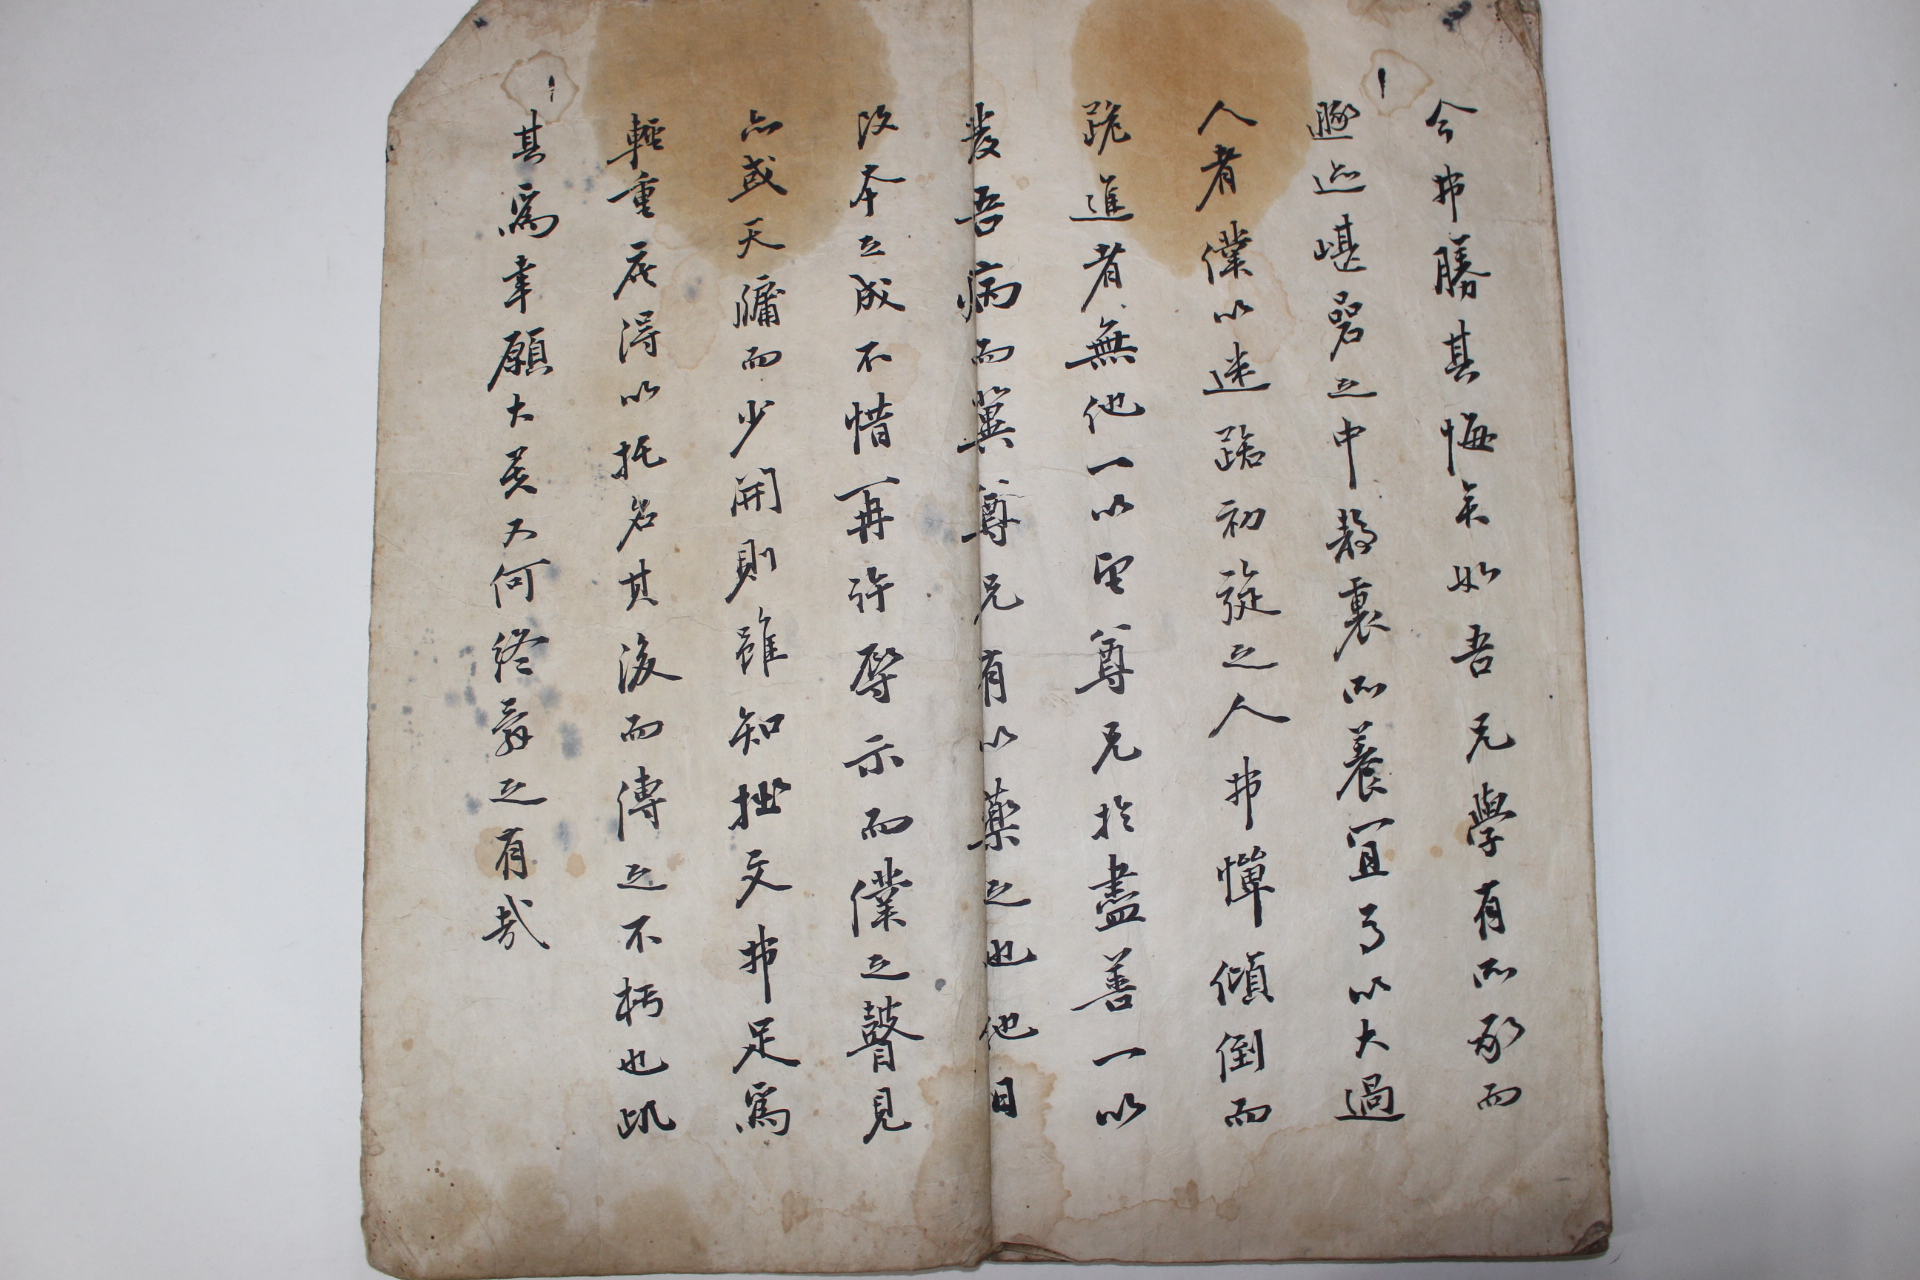 今弗勝其悔矣如吾兄學有所承而
遯迹嵁碞之中敎裏所養冝乎以大過
人者僕以迷路初旋之人弗憚傾倒而
跪進者無他一以望尊兄於盡善一以
發吾病而冀尊兄有以藥之也他日
改本之成不惜再許辱示而僕之瞽見
亦或天牖而少開則雖知拙文弗足爲
輕重庶得以托名其後而傳之不朽也
其爲幸願大矣又何終辭之有哉